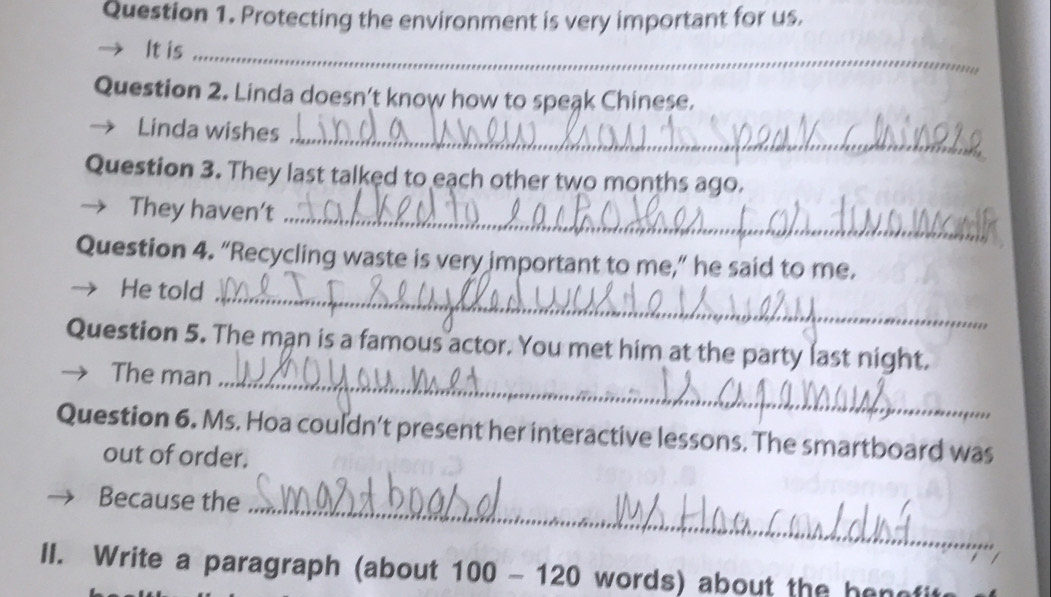 Question 1. Protecting the environment is very important for us.
→ It is
Question 2. Linda doesn't know how to speak Chinese.
→ Linda wishes Linda knew how to speak Chinese
Question 3. They last talked to each other two months ago.
→ They haven't talked to each other for two month
Question 4. "Recycling waste is very important to me," he said to me.
→ He told me recycled waste is very
Question 5. The man is a famous actor. You met him at the party last night.
→ The man who you met is a famous
Question 6. Ms. Hoa couldn't present her interactive lessons. The smartboard was
out of order.
→ Because the smartboard Ms Hoa couldn't
II. Write a paragraph (about 100 – 120 words) about the benefits of